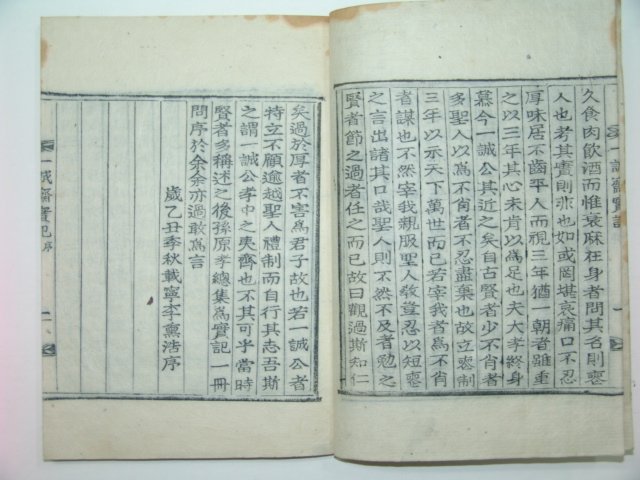 久食肉飮酒而惟衰麻在身者問其名則喪
人也考其實則亦也如或罔堪哀痛口不忍
厚味居不齒平人而視三年猶一朝者雖重
之以三年其心未肯以爲足也夫大孝終身
慕今一誠公其近之矣自古賢者少不肖者
多聖人以爲不肖者不忍盡棄也故立喪制
三年以示天下萬世而已若宰我者爲不肖
者謀也不然宰我親服聖人敎豈忍以短喪
之言出諸其口哉聖人則不然不及者勉之
賢者節之過者任之而已故曰觀過斯知仁
一誠齋實記
矣過於厚者不害爲君子故也若一誠公者
特立不顧逾越聖人禮制而自行其志吾斯
之謂一誠公孝中之夷齊也不其可乎當時
賢者多稱述之後孫原孝總集爲實記一冊
問序於余余亦過敢爲言
歲乙丑季秋載寧李薰浩序
一誠齋實記 序